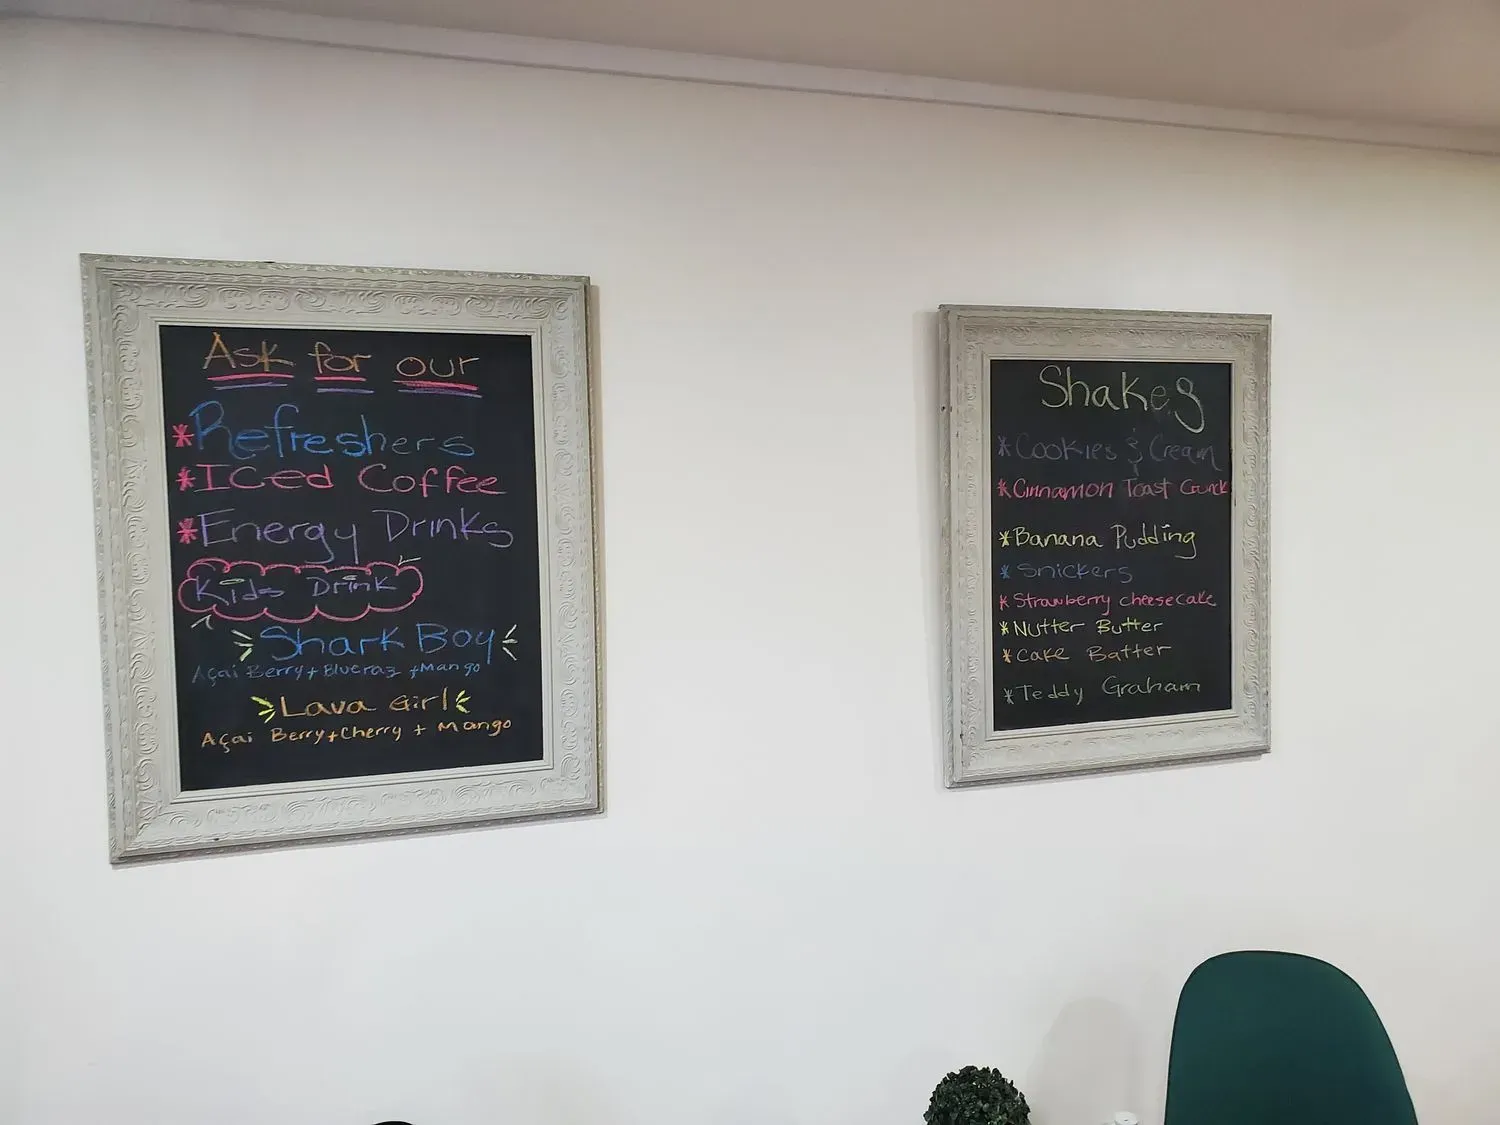 Ask for our
*Refreshers
*Iced Coffee
*Energy Drinks
Kids Drink
Shark Boy
Açai Berry + Blueraz + Mango
Lava Girl
Açai Berry + Cherry + Mango
Shakes
*Cookies & Cream
*Cinnamon Toast Crunch
*Banana Pudding
*Snickers
*Strawberry cheesecake
*Nutter Butter
*Cake Batter
*Teddy Graham